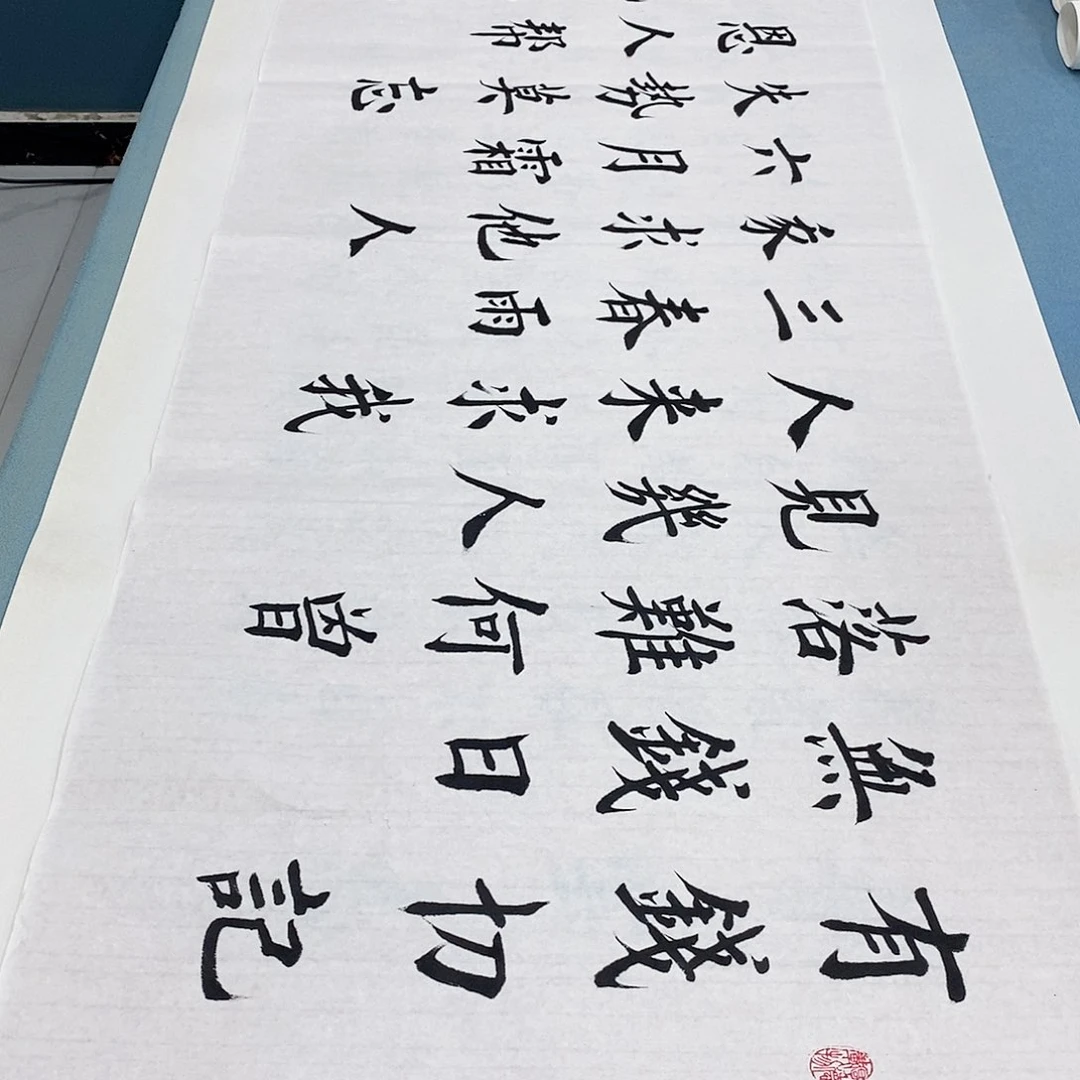 有錢切記
無錢日
落難何曾
見幾人
人来求我
三春雨
求他人
六月霜
失勢莫忘
恩人帮